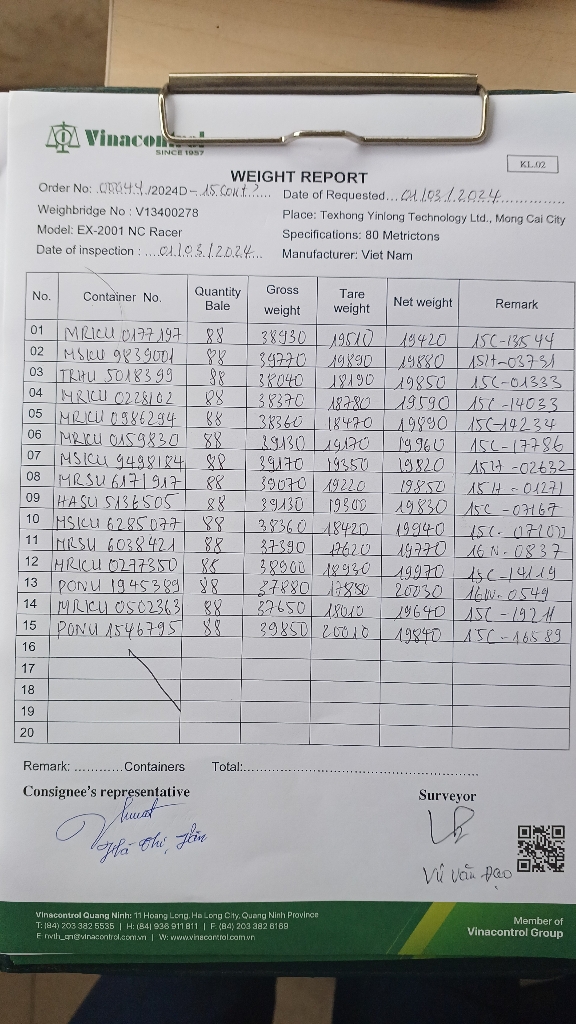 Vinacontrol
SINCE 1957
KL.02
WEIGHT REPORT
Order No: 00044/2024D - 15 Cont? Date of Requested...01/03/2024
Weighbridge No : V13400278 Place: Texhong Yinlong Technology Ltd., Mong Cai City
Model: EX-2001 NC Racer Specifications: 80 Metrictons
Date of inspection : ...01/03/2024 Manufacturer: Viet Nam
No. Container No. Quantity Bale Gross weight Tare weight Net weight Remark
01 MRKU 0177197 88 38930 19510 19420 15C-135 44
02 MSKU 9839001 88 39770 19890 19880 15H-03731
03 TRHU 5018399 88 38040 18190 19850 15C-01333
04 MRKU 0228102 88 38370 18780 19590 15C-14033
05 MRKU 0986294 88 38360 18470 19890 15C-14234
06 MRKU 0159830 88 39130 19170 19960 15C-17786
07 MSKU 9498184 88 39170 19350 19820 15H-02632
08 MRSU 6171917 88 39070 19220 19850 15H-01271
09 HASU 5136505 88 39130 19300 19830 15C-07167
10 MSKU 6285077 88 38360 18420 19940 15C-
11 MRSU 6038421 88 37390 17620 19770 16N-0837
12 MRKU 0277350 88 38900 18930 19970 15C-14119
13 PONU 1945389 88 37880 17850 20030 16N-0549
14 MRKU 0502363 88 37650 18010 19640 15C-19211
15 PONU 1546795 88 39850 20010 19840 15C-16589
16
17
18
19
20
Remark: ............Containers Total:
Consignee's representative Surveyor
Vũ Văn Đạo
Vinacontrol Quang Ninh: 11 Hoang Long, Ha Long City, Quang Ninh Province
T: (84) 203 382 5535 | H: (84) 936 911 811 | F: (84) 203 382 6169
E: nvth_qn@vinacontrol.com.vn | W: www.vinacontrol.com.vn
Member of
Vinacontrol Group